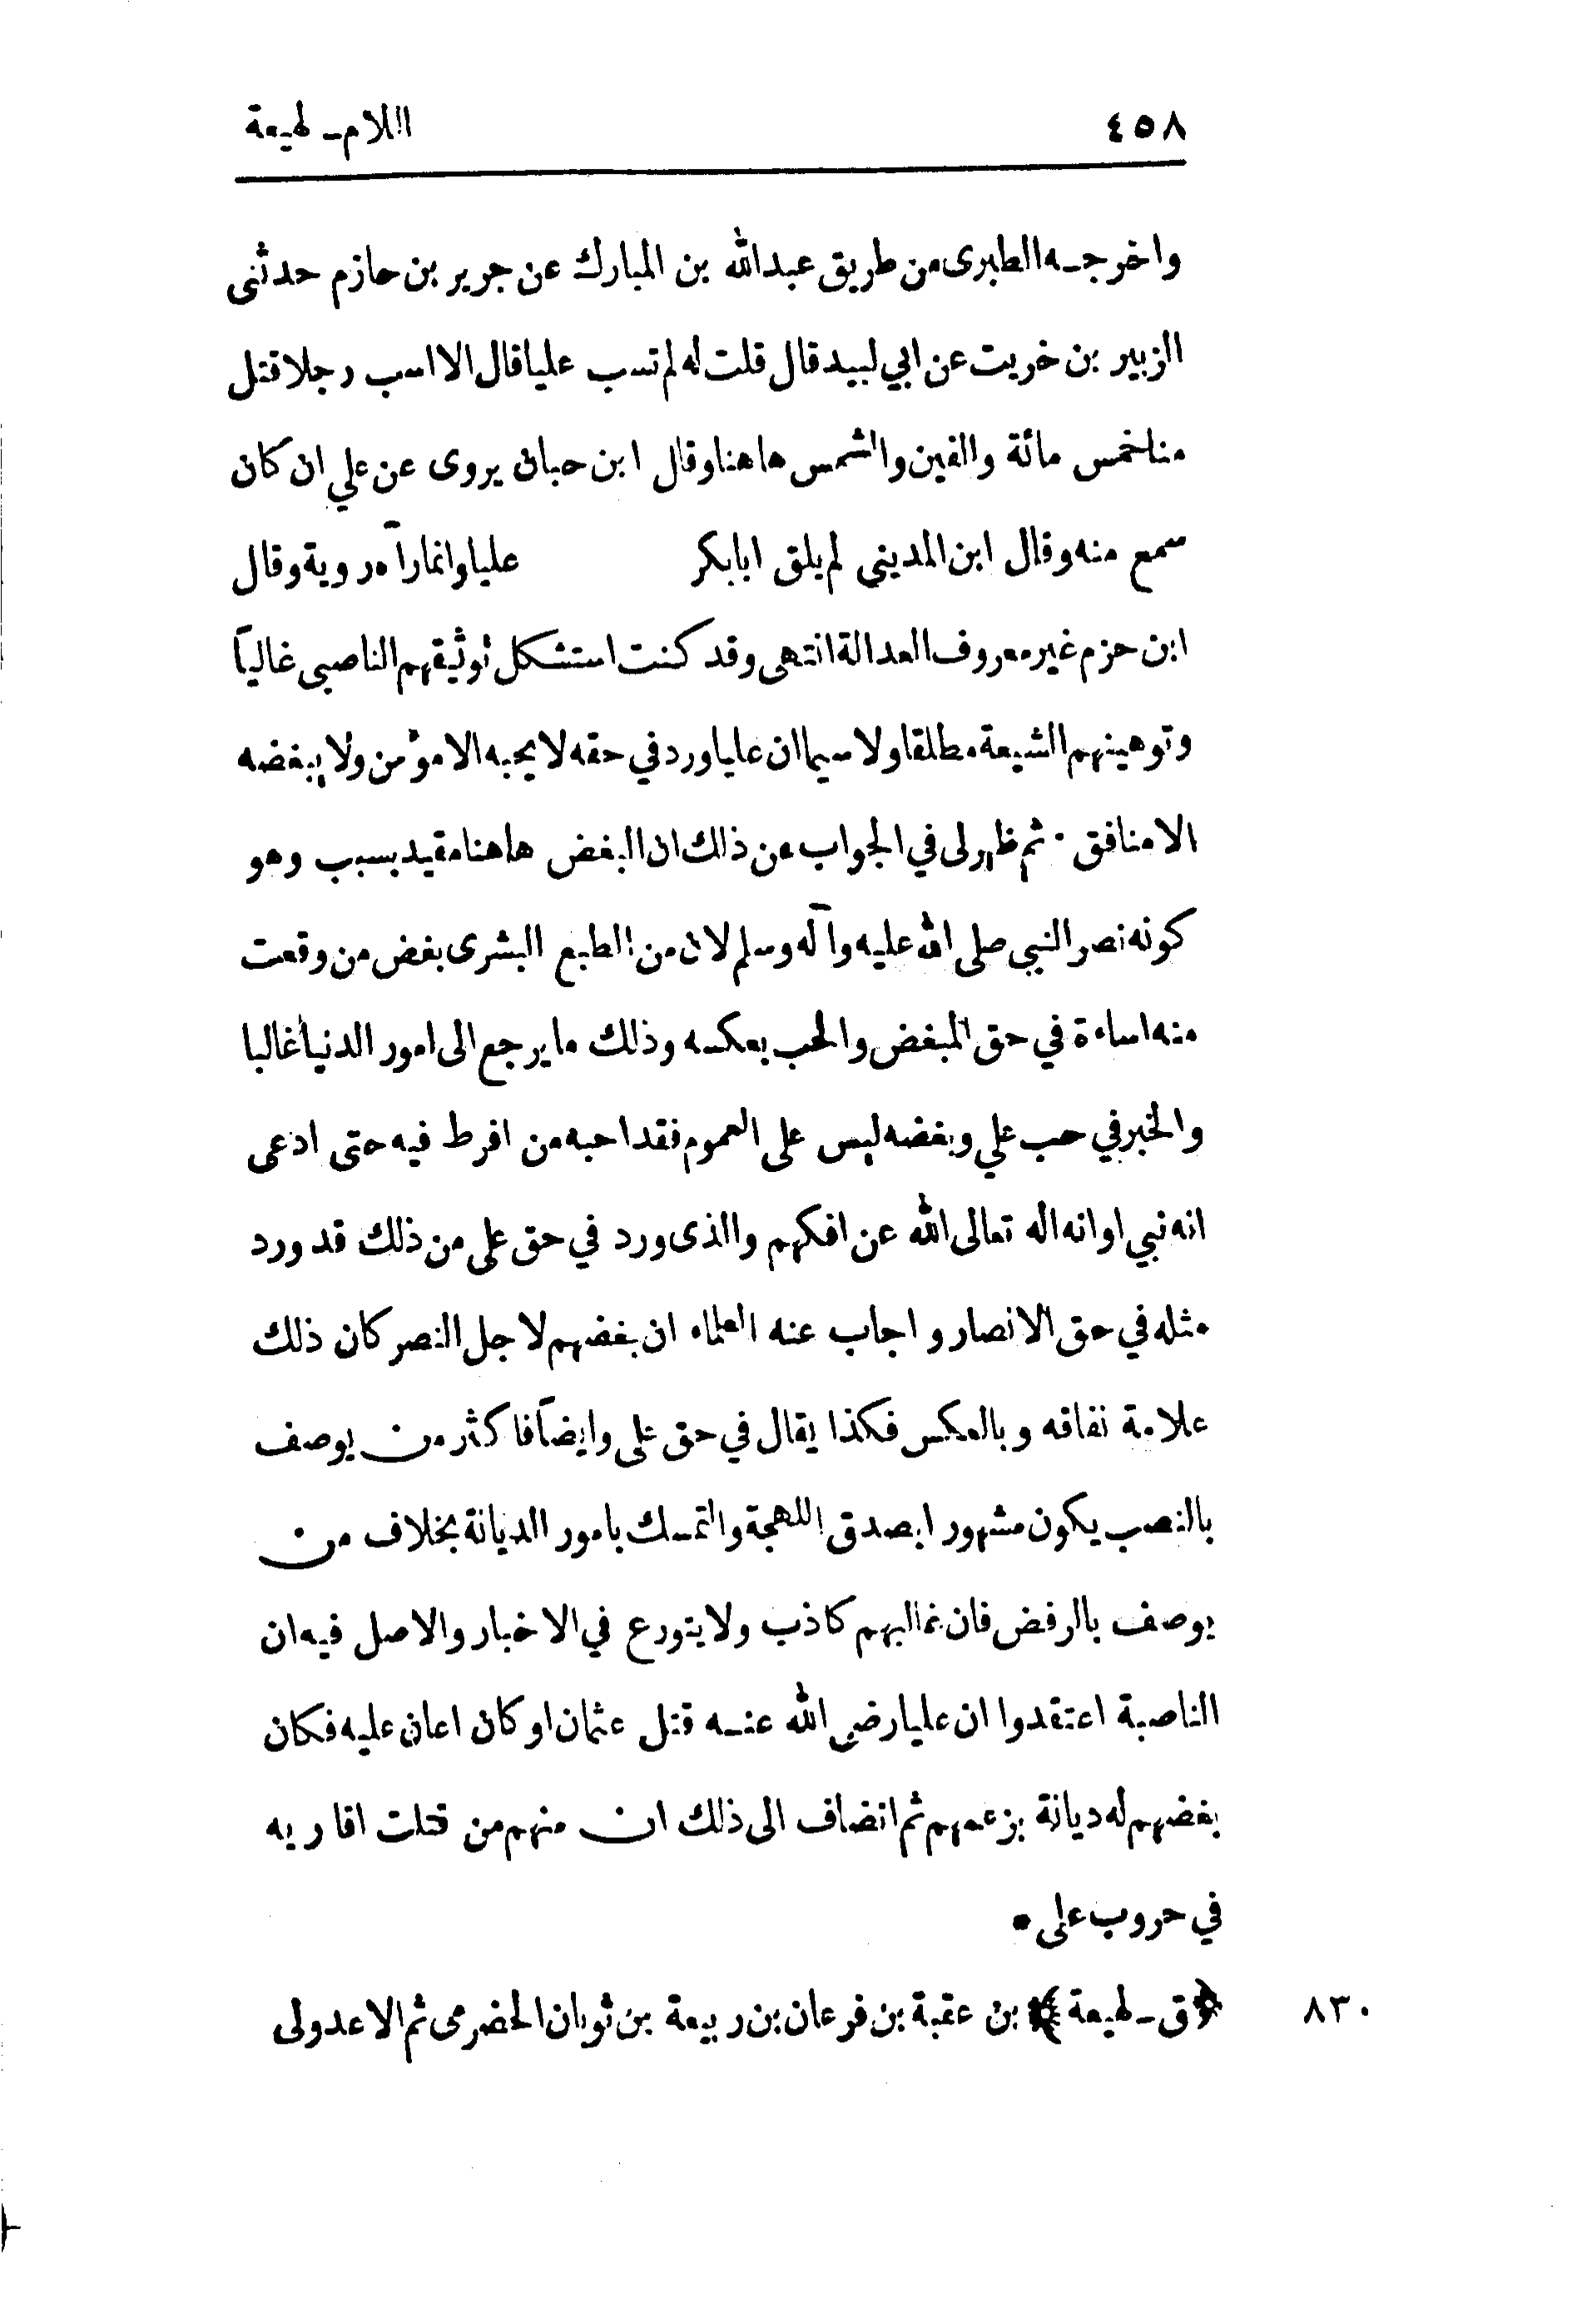 ٤٥٨
اللام - لهيعة
واخرجه الطبرى من طريق عبدالله بن المبارك عن جرير بن حازم حدثنى
الزبير بن خريت عن ابي لبيد قال قلت له لم تسب عليا قال الا اسب رجلا قتل
منا خمس مائة والفين والشمس هاهنا وقال ابن حبان يروى عن علي ان كان
سمع منه وقال ابن المديني لم يلق ابابكر عليا وانما رآه روية وقال
ابن حزم غير معروف العدالة انتهى وقد كنت استشكل توثيقهم الناصبى غالباً
وتوهينهم الشيعة مطلقا ولا سيما ان عليا ورد في حقه لا يحبه الا مؤمن ولا يبغضه
الا منافق . ثم ظهر لى في الجواب عن ذلك ان البغض هاهنا مقيد بسبب وهو
كونه نصر النبي صلى الله عليه وآله وسلم لان من الطبع البشرى بغض من وقعت
منه اساءة في حق المبغض والحب بعكسه وذلك ما يرجع الى امور الدنيا غالبا
والخبر في حب علي وبغضه ليس على العموم فقد احبه من افرط فيه حتى ادعى
انه نبي او انه اله تعالى الله عن افكهم والذى ورد في حق على من ذلك قد ورد
مثله في حق الانصار واجاب عنه العلماء ان بغضهم لاجل النصر كان ذلك
علامة نفاقه وبالعكس فكذا يقال في حق على وايضاً فاكثر من يوصف
بالنصب يكون مشهورا بصدق اللهجة والتمسك بامور الديانة بخلاف من
يوصف بالرفض فان غالبهم كاذب ولا يتورع في الاخبار والاصل فيه ان
الناصبة اعتقدوا ان عليا رضى الله عنه قتل عثمان او كان اعان عليه فكان
بغضهم له ديانة بزعمهم ثم انضاف الى ذلك ان منهم من قتلت اقاربه
في حروب على •
٨٣٠ ﴿ق - لهيعة﴾ بن عقبة بن فرعان بن ربيعة بن ثوبان الحضرمى ثم الاعدولى